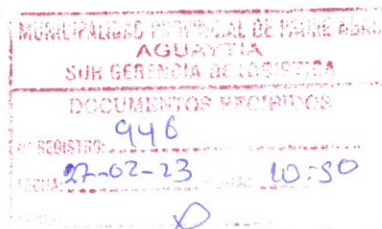 MUNICIPALIDAD PROVINCIAL DE PADRE ABAD
AGUAYTIA
SUB GERENCIA DE LOGISTICA
DOCUMENTOS RECIBIDOS
N° REGISTRO: 946
FECHA: 27-02-23 10:30